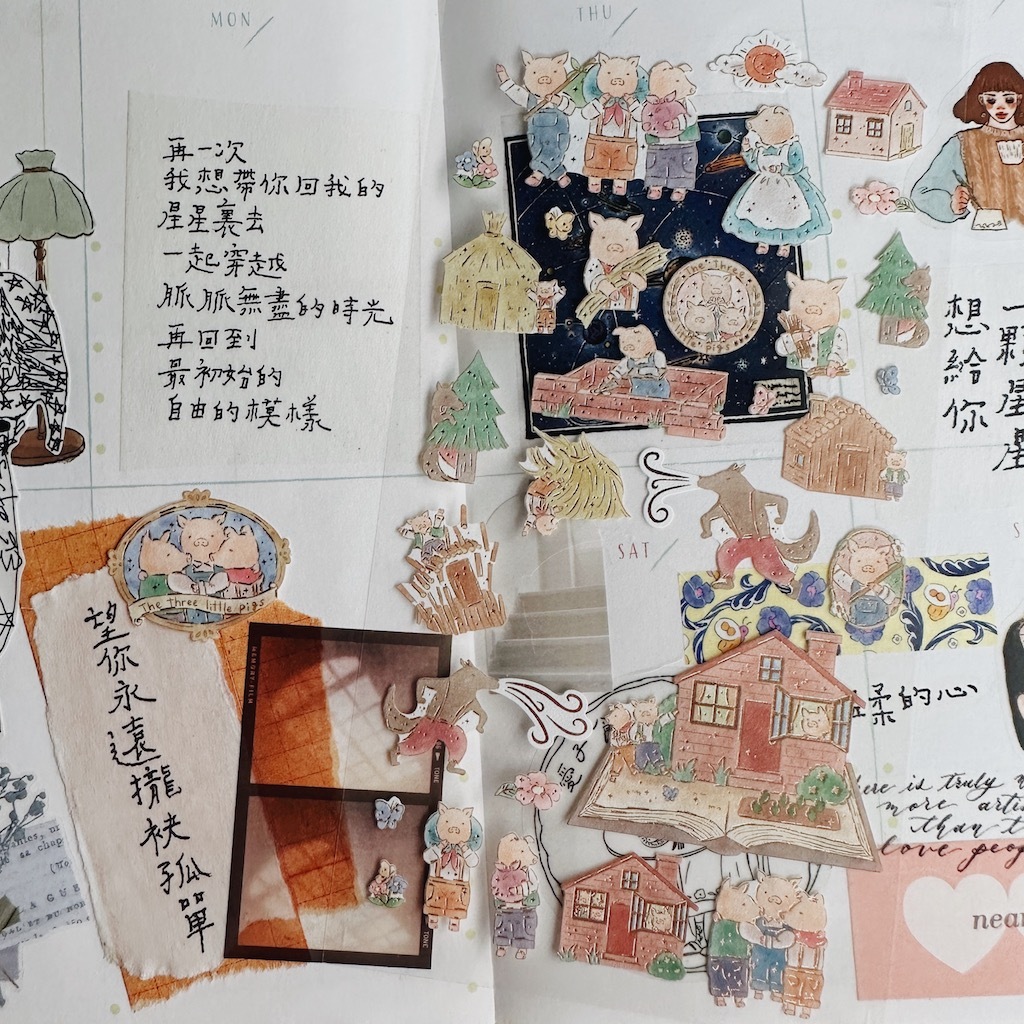 MON
THU
再一次
我想帶你回我的
星星裏去
一起穿越
脈脈無盡的時光
再回到
最初始的
自由的模樣
The Three
little pigs
想給你
一顆星星
The three little pigs
望你永遠擺
孤單
MEMORY FILM
TONE
TONE
SAT
柔的心
is truly
more
than
love
near